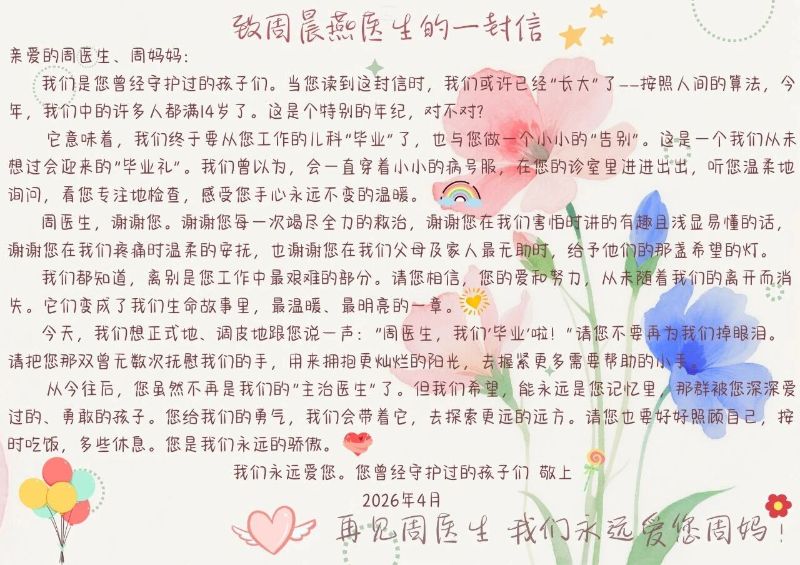 致周晨燕医生的一封信
亲爱的周医生、周妈妈：
我们是您曾经守护过的孩子们。当您读到这封信时，我们或许已经“长大”了--按照人间的算法，今
年，我们中的许多人都满14岁了。这是个特别的年纪，对不对？
它意味着，我们终于要从您工作的儿科“毕业”了，也与您做一个小小的“告别”。这是一个我们从未
想过会迎来的“毕业礼”。我们曾以为，会一直穿着小小的病号服，在您的诊室里进进出出，听您温柔地
询问，看您专注地检查，感受您手心永远不变的温暖。
周医生，谢谢您。谢谢您每一次竭尽全力的救治，谢谢您在我们害怕时讲的有趣且浅显易懂的话，
谢谢您在我们疼痛时温柔的安抚，也谢谢您在我们父母及家人最无助时，给予他们的那盏希望的灯。
我们都知道，离别是您工作中最艰难的部分。请您相信，您的爱和努力，从未随着我们的离开而消
失。它们变成了我们生命故事里，最温暖、最明亮的一章。
今天，我们想正式地、调皮地跟您说一声：“周医生，我们‘毕业’啦！”请您不要再为我们掉眼泪。
请把您那双曾无数次抚慰我们的手，用来拥抱更灿烂的阳光，去握紧更多需要帮助的小手。
从今往后，您虽然不再是我们的“主治医生”了。但我们希望，能永远是您记忆里，那群被您深深爱
过的、勇敢的孩子。您给我们的勇气，我们会带着它，去探索更远的远方。请您也要好好照顾自己，按
时吃饭，多些休息。您是我们永远的骄傲。
我们永远爱您。您曾经守护过的孩子们 敬上
2026年4月
再见周医生 我们永远爱您周妈！